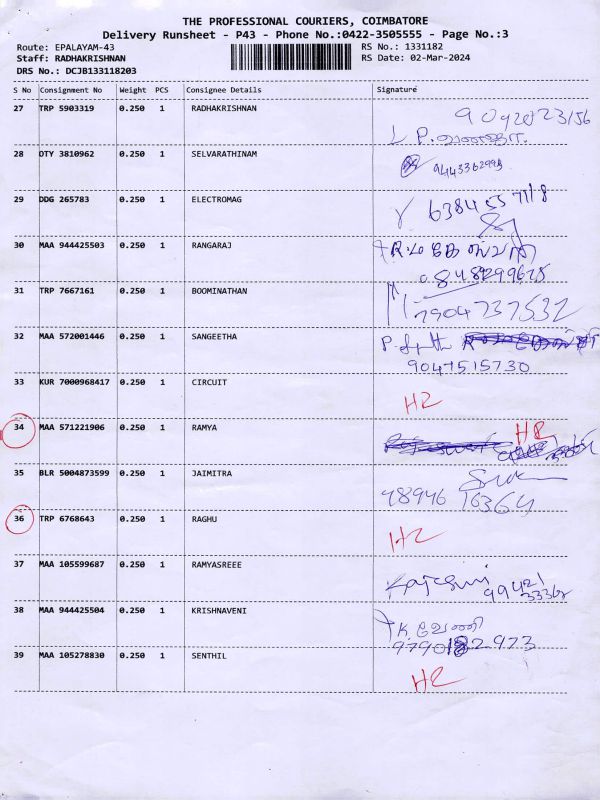 THE PROFESSIONAL COURIERS, COIMBATORE
Delivery Runsheet - P43 - Phone No.:0422-3505555 - Page No.:3
Route: EPALAYAM-43 RS No.: 1331182
Staff: RADHAKRISHNAN RS Date: 02-Mar-2024
DRS No.: DCJB133118203
S No Consignment No Weight PCS Consignee Details Signature
27 TRP 5903319 0.250 1 RADHAKRISHNAN
28 DTY 3810962 0.250 1 SELVARATHINAM
29 DDG 265783 0.250 1 ELECTROMAG
30 MAA 944425503 0.250 1 RANGARAJ
31 TRP 7667161 0.250 1 BOOMINATHAN
7904737532
32 MAA 572001446 0.250 1 SANGEETHA
9047515730
33 KUR 7000968417 0.250 1 CIRCUIT
H2
34 MAA 571221906 0.250 1 RAMYA
35 BLR 5004873599 0.250 1 JAIMITRA
36 TRP 6768643 0.250 1 RAGHU
H2
37 MAA 105599687 0.250 1 RAMYASREEE
38 MAA 944425504 0.250 1 KRISHNAVENI
39 MAA 105278830 0.250 1 SENTHIL
H2